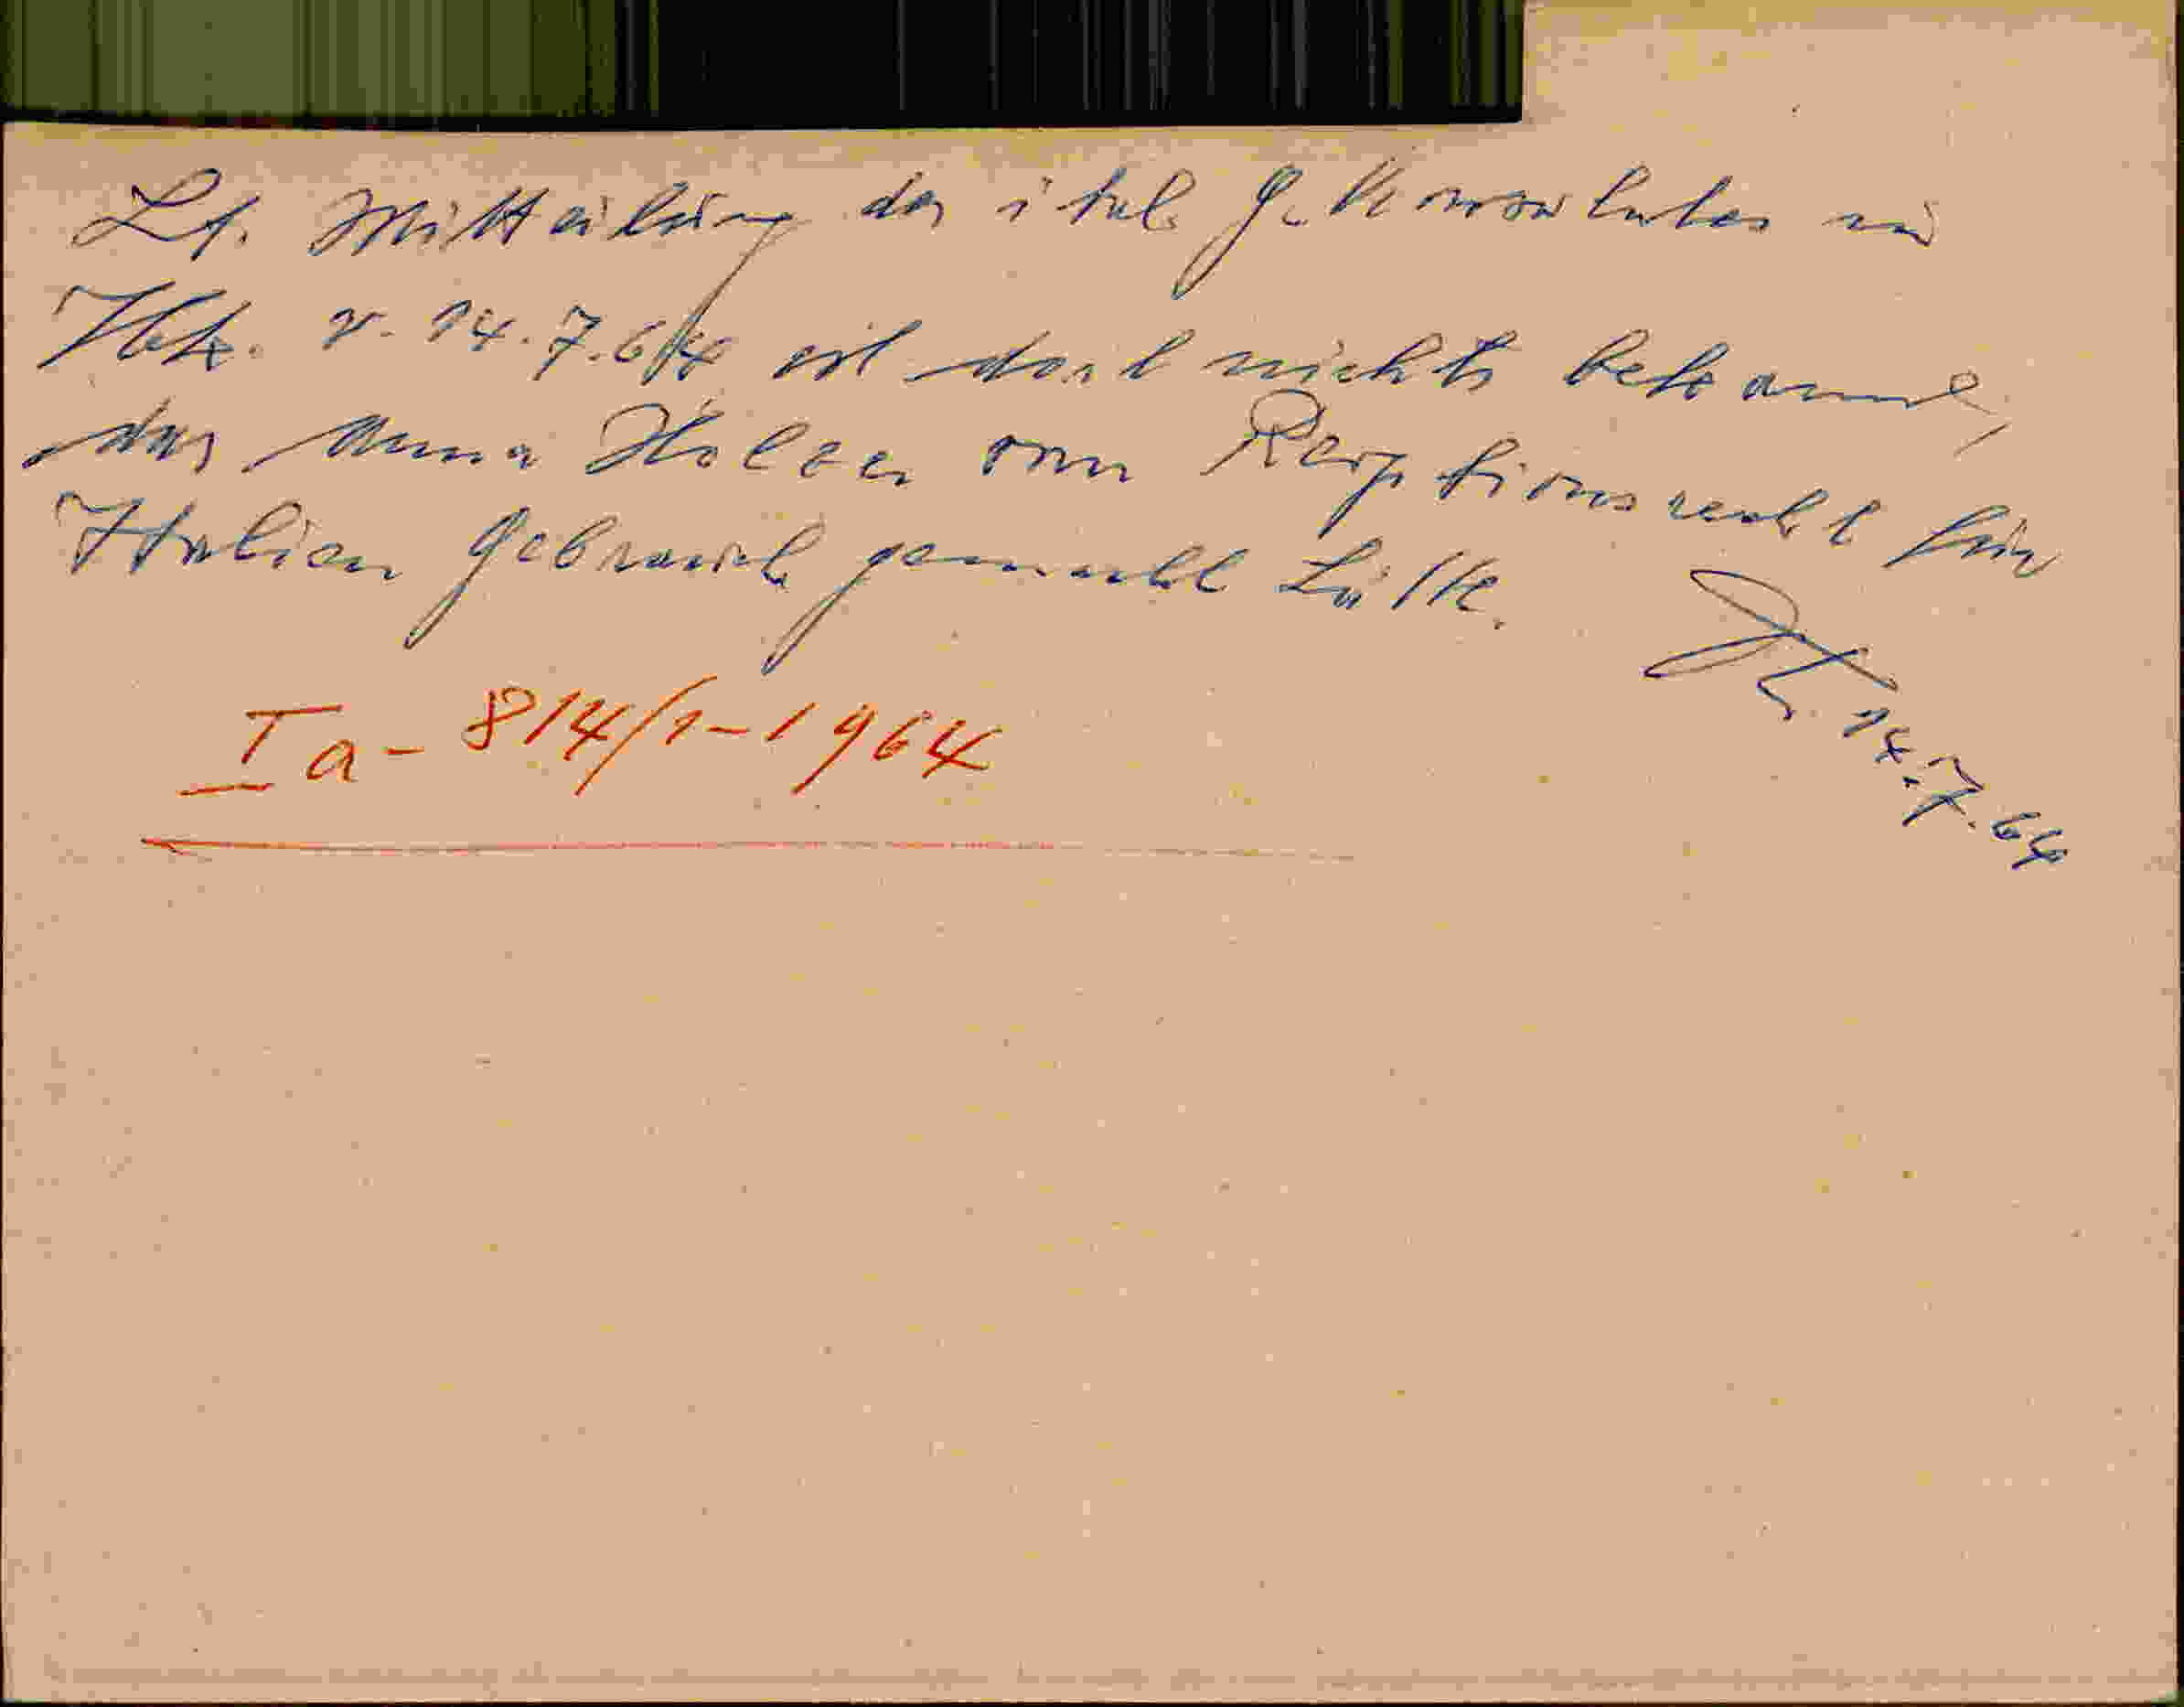 Lt. Mitteilung des ital. G. Konsulates in
v. 14.7.64 ist dort nichts bekannt,
das Anna Holzer vom Reoptionsrecht für
Italien Gebrauch gemacht hätte.
14.7.64
Ia - 814/1-1964